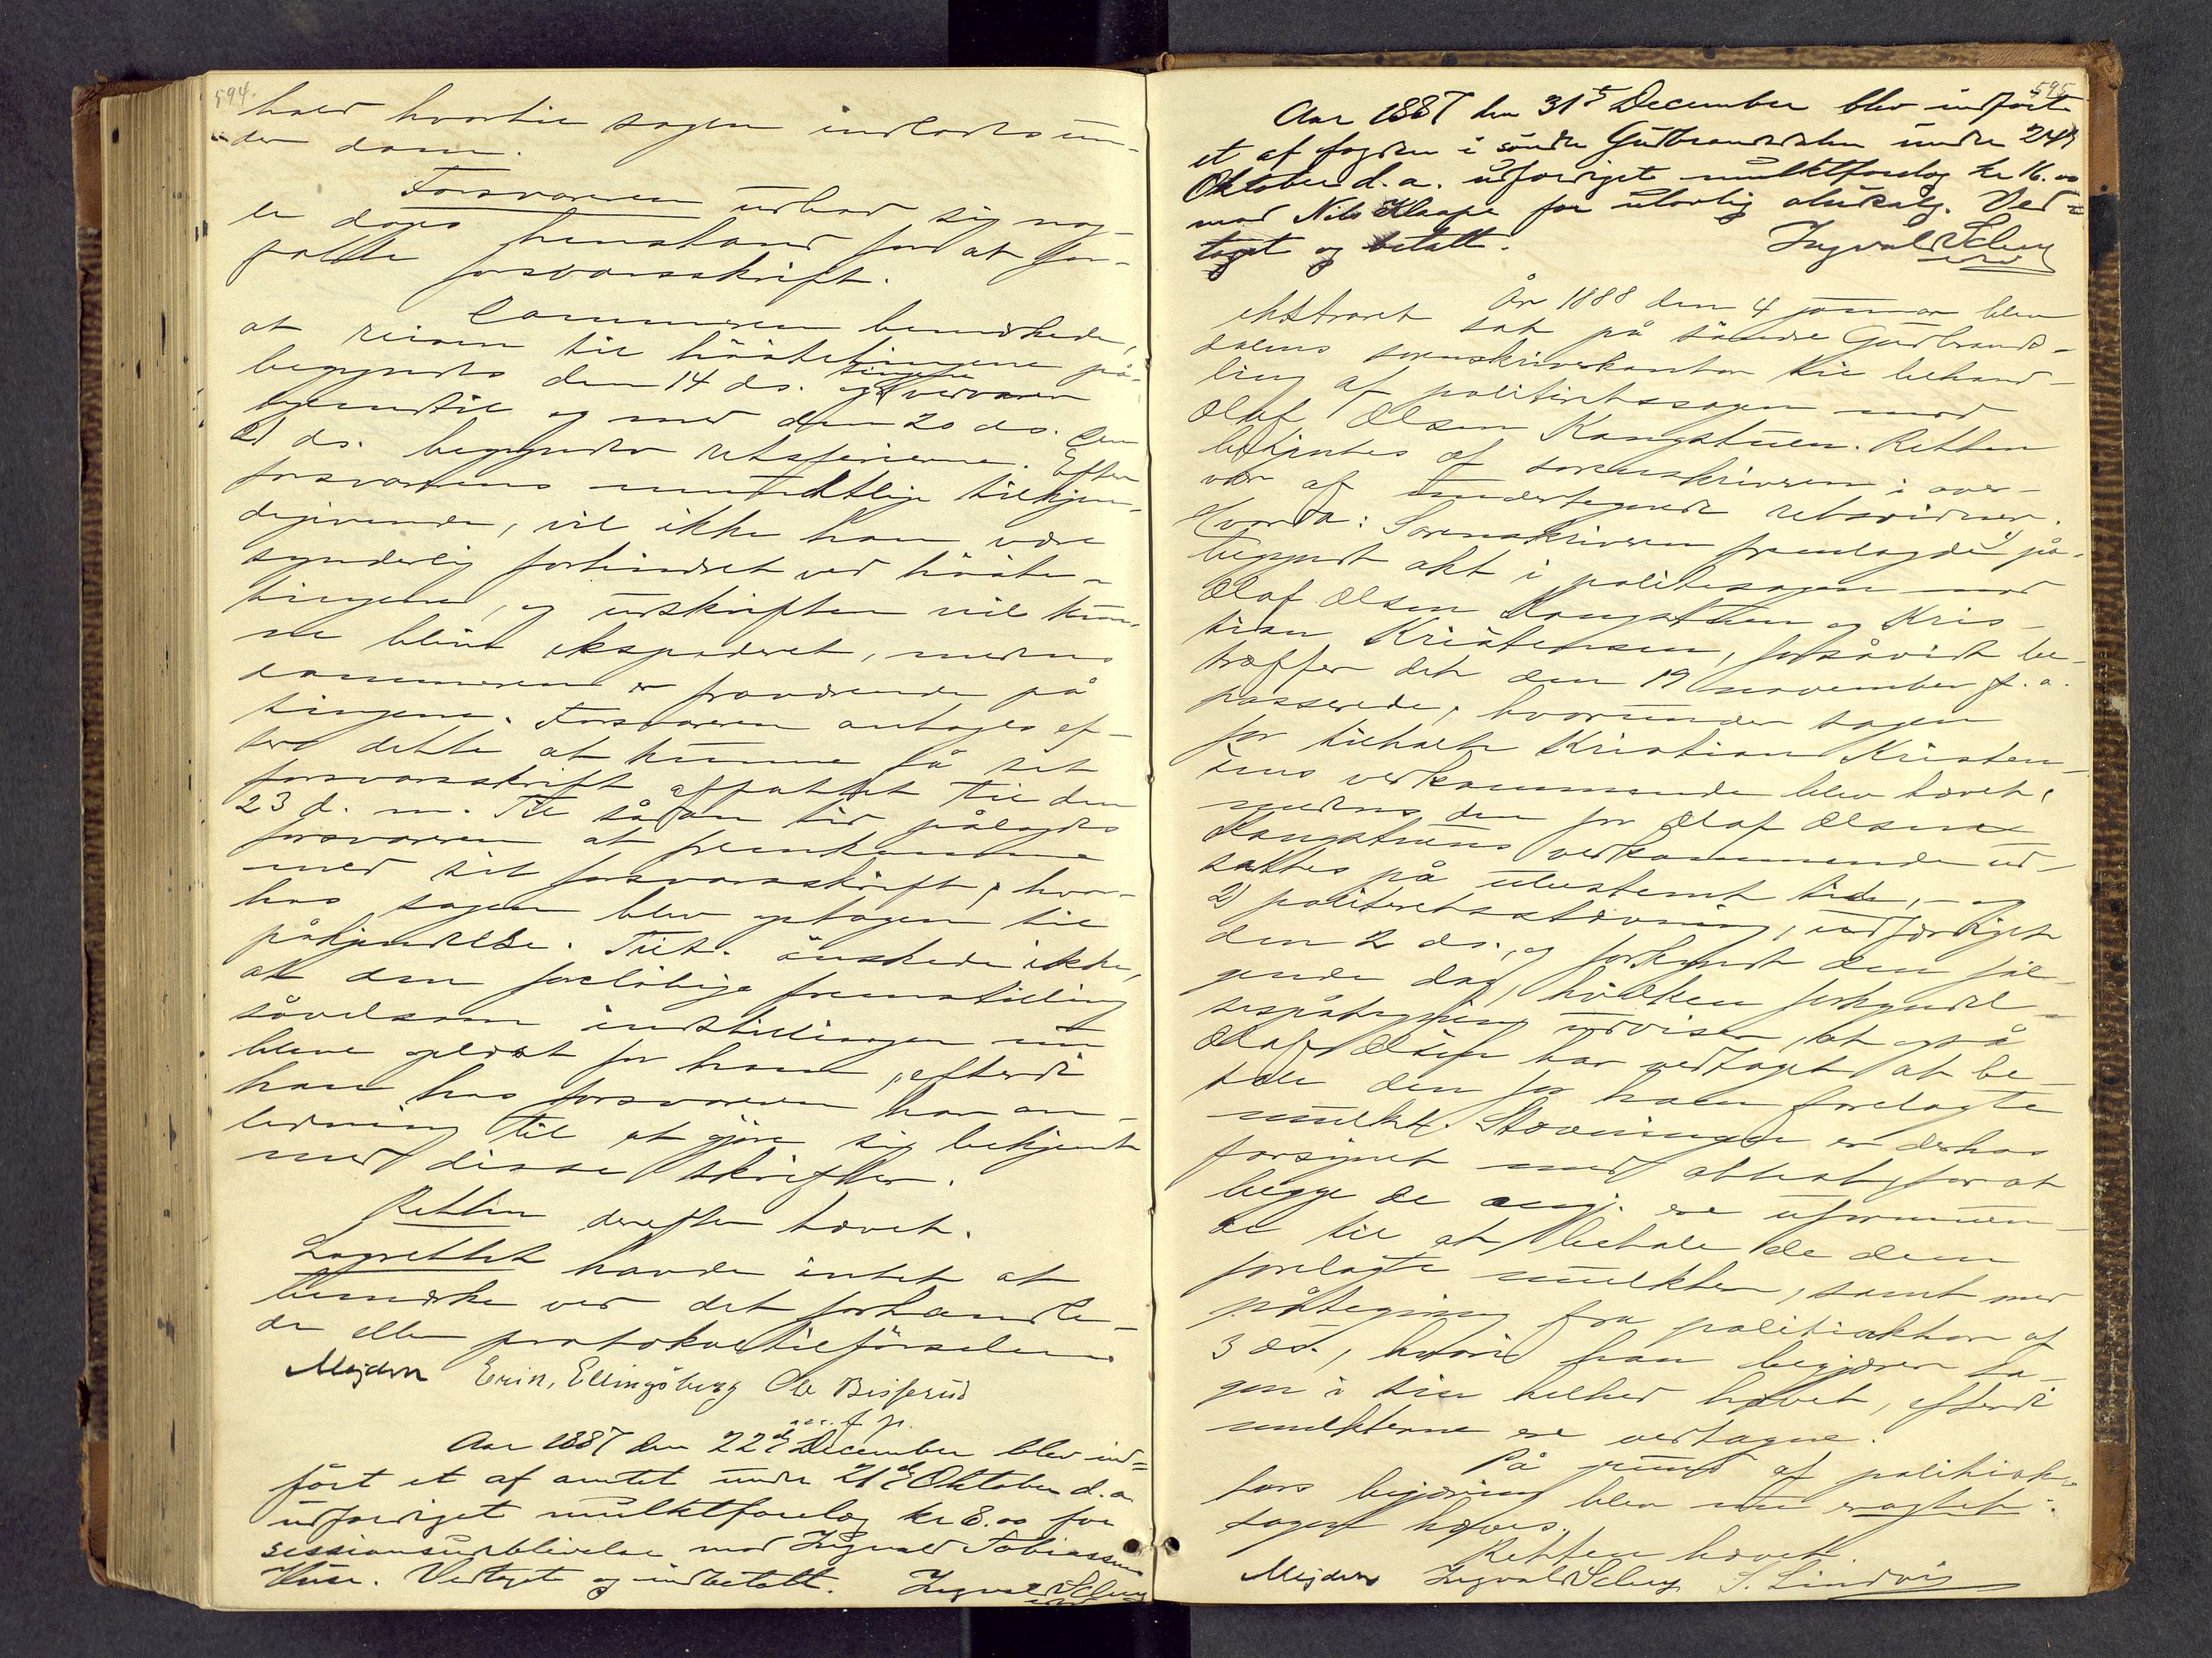 594.
hold hvortil sagen indlodes un-
der dom.
Forsvareren udbad sig nog-
le dages henstand for at for-
fatte forsvarsskrift.
Dommeren bemærkede,
at reisen til høstetingene på-
begyndes den 14 ds. og tingene vedvarer
til og med den 20 ds. Den
21 ds. begynder retsferierne. Efter
forsvarerens mundtlige tilkjen-
degivende, vil ikke han være
synderlig forhindret ved høste-
tingene, og udskriften vil kun-
ne blive ekspederet, medens
dommeren er fraværende på
tingene. Forsvareren antages ef-
ter dette at kunne få sit
forsvarsskrift affattet til den
23 d. m. Til sådan tid pålagdes
forsvareren at fremkomme
med sit forsvarsskrift, hvor-
hos sagen blev optagen til
påkjendelse. Tilt. ønskede ikke,
at den foreløbige fremstilling
såvelsom indstillingen nu
bleve oplæst for ham, efterdi
han hos forsvareren har an-
ledning til at gjøre sig bekjent
med disse skrifter.
Retten derefter hævet.
Lagrettet havde intet at
bemærke ved det forhandle-
de eller protokoltilførselen.
Mejdell Erik, Ellingsberg Ole Bisserud
m. f. p.
Aar 1887 den 22de December blev ind=
ført et af amtet under 21de Oktober d. a.
udfærdiget mulktforelag kr 8.00 for
sessionsudeblivelse mod Ingvald Tobiassen
Huse. Vedtaget og indbetalt. Ingvald
595
Aar 1887 den 31te December blev indført
et af fogden i søndre Gudbrandsdalen under 24de
Oktober d. a. udfærdiget mulktforelag kr 16.00
mod Nils Klaape for ulovlig øludsalg. Ved=
taget og betalt. Ingvald
År 1888 den 4 januar blev
ekstraret sat på søndre Gudbrands-
dalens sorenskriverkontor til behand-
ling af politiretssagen mod
Olaf Olsen Kongstuen. Retten
betjentes af sorenskriveren i over-
vær af undertegnede retsvidner.
Hvorda: Sorenskriveren fremlagde 1) på-
begyndt akt i politisagen mod
Olaf Olsen Kongstuen og Kris-
tian Kristensen, forsåvidt be-
træffer det den 19 november f. a.
passerede, hvorunder sagen
for tiltalte Kristian Kristen-
sens vedkommende blev hævet,
medens den for Olaf Olsen
Kongstuens vedkommende ud-
sattes på ubestemt tid, - og
2) politiretsstævning, udfærdiget
den 2 ds., og forkyndt den føl-
gende dag, hvilken forkyndel-
sespåtegning udviser, at også
Olaf Olsen har vedtaget at be-
tale den for ham forelagte
mulkt. Stævningen er derhos
forsynet med attest, for at
begge de ang. ere uformuen-
de til at betale de dem
forelagte mulkter, samt med
påtegning fra politiaktor af
3 ds., hvori han begjærer sa-
gen i sin helhed hævet, efterdi
mulkterne ere vedtagne.
På grund af politiak-
tors begjæring blev nu eragtet:
sagen hæves.
Retten hævet.
Mejdell Ingvald S. Lindvig